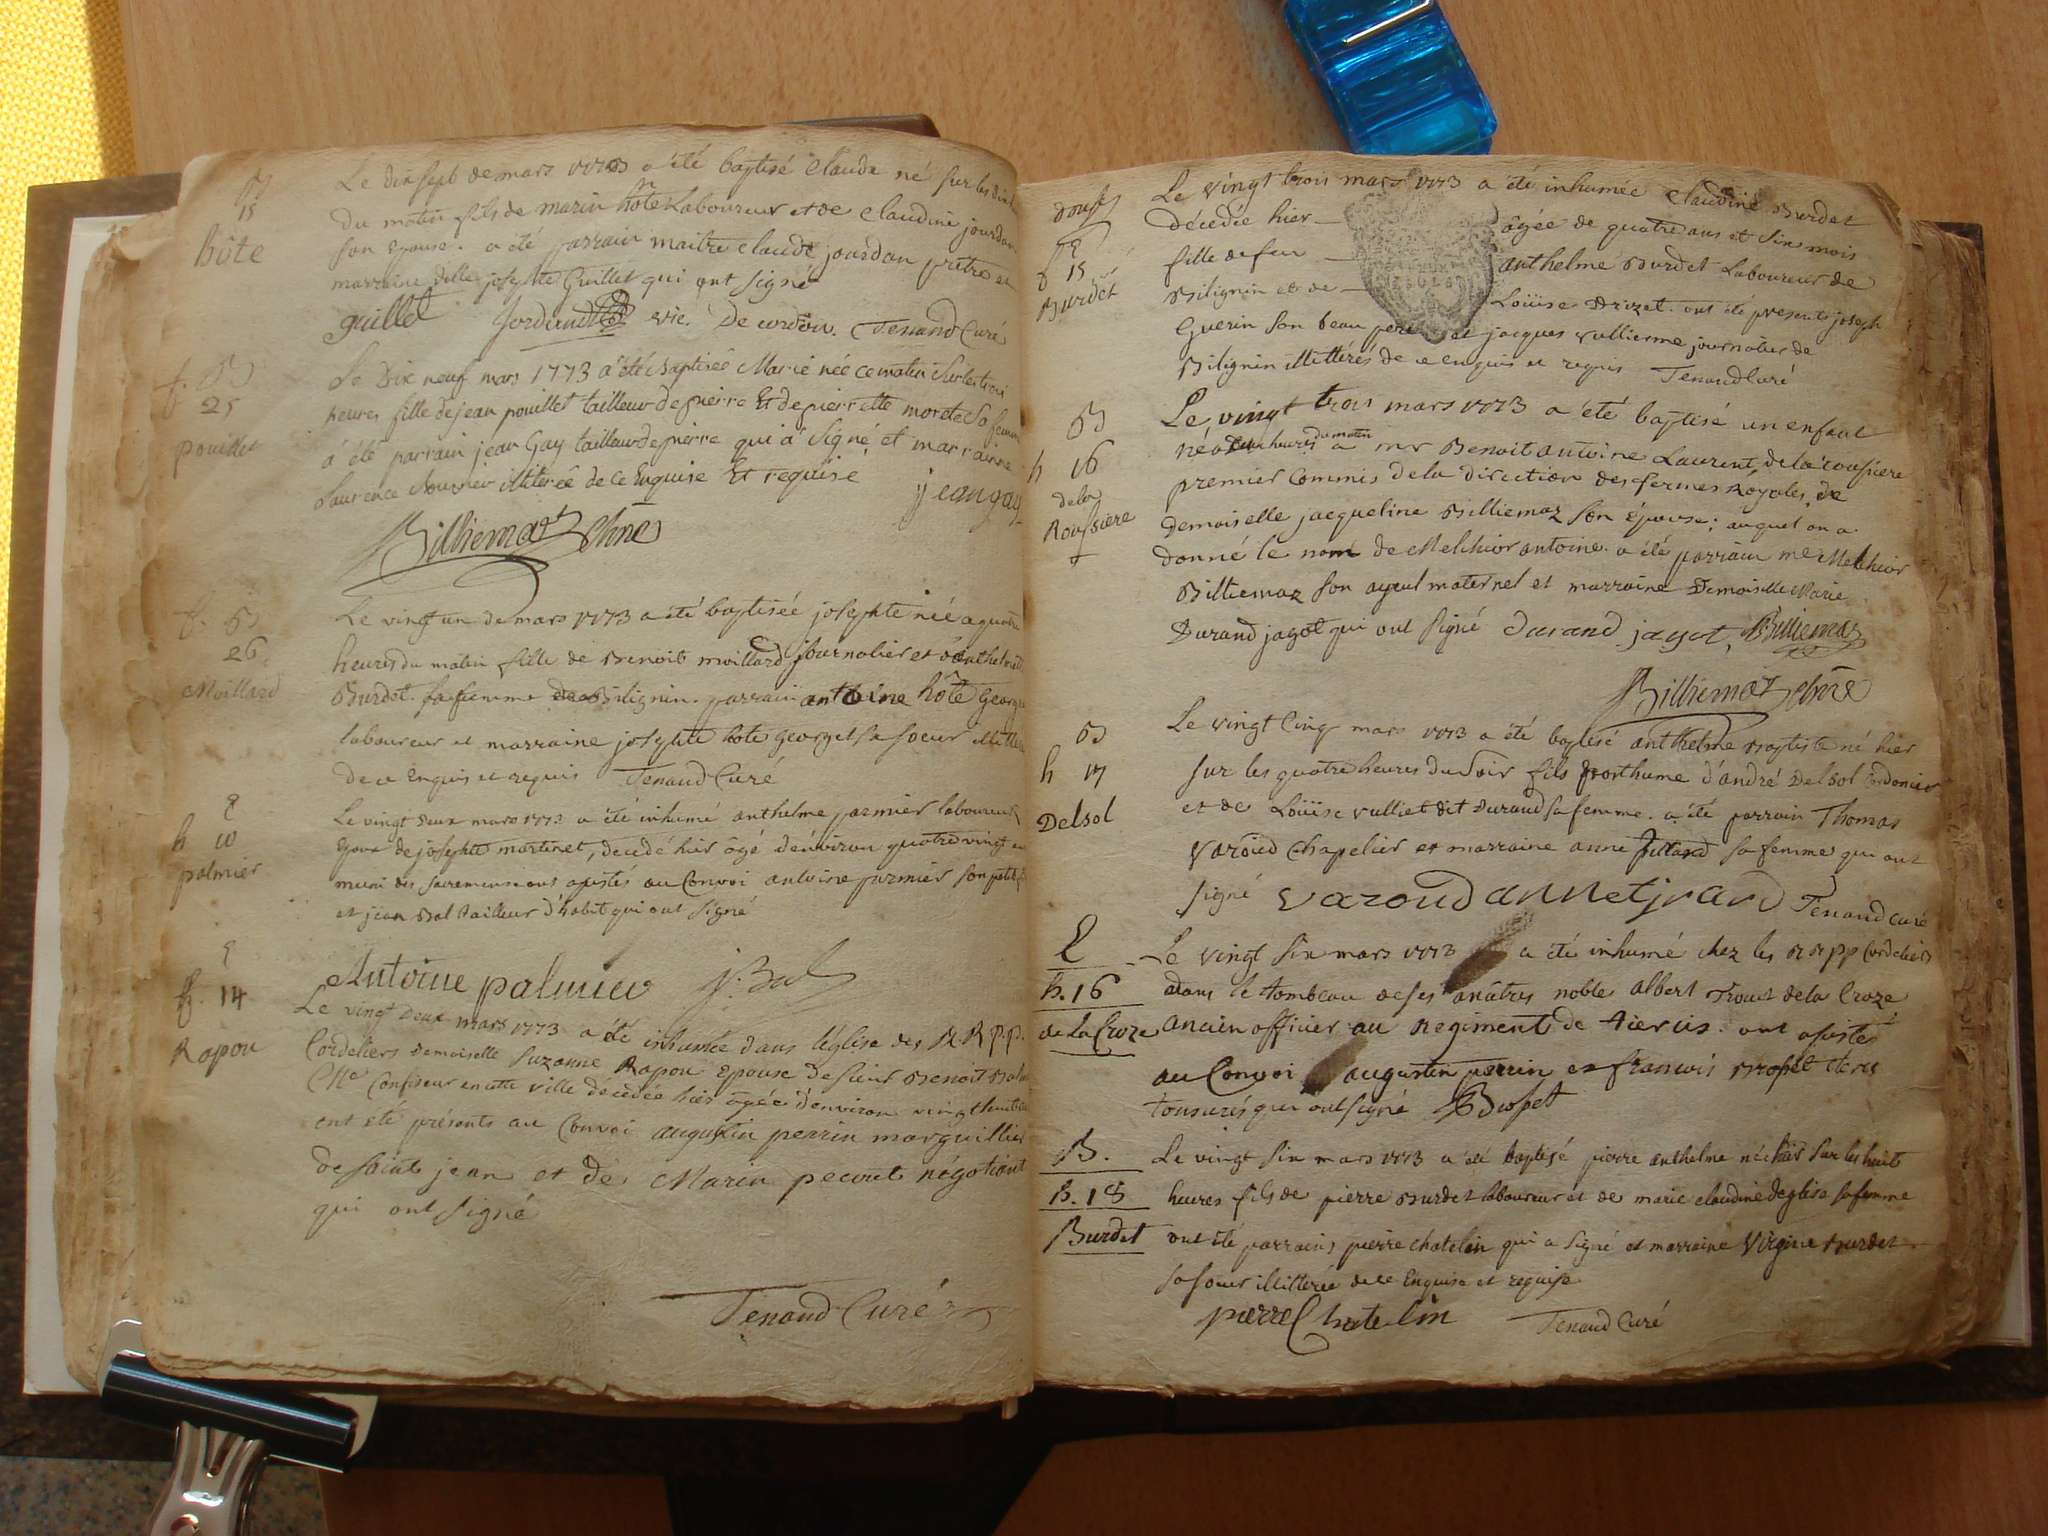 B
15
hôte
Le dix sept de mars 1773 a été baptisé Claude né sur les dix
du matin fils de marin hôte Laboureur et de Claudine jourdan
son Epouse. a été parrain maitre Claude jourdan prêtre et
marraine dlle josephte Guillet qui ont signé
guillet vic. De cordon. Tenand Curé
f. B
25
pouillet
Le Dix neuf mars 1773 a été Baptisée Marie née ce matin sur les trois
heures fille de jean pouillet tailleur de pierre Et de pierrette morete sa femme
a été parrain jean Gay tailleur de pierre qui a signé et marrainne
Laurence illiterée de ce Enquise Et requise
jean gay
Billiemaz
f. B
26
Moillard
Le vingt un de mars 1773 a été baptisée josephte née a quatre
heures du matin fille de Benoit moillard journalier et d'anthelmette
Burdet sa femme de Bilignin. parrain antoine hôte George
laboureur et marraine josephte hote George sa soeur
de ce Enquis et requis Tenand Curé
E
h 10
palmier
Le vingt deux mars 1773 a été inhumé anthelme parmier laboureur
Epoux de josephte martinet, decedé hier âgé d'environ quatre vingt
muni des sacremens ont assistés au Convoi antoine parmier son petit
et jean Bal tailleur d'habit qui ont signé
Antoine palmier j. Bal
E
f. 14
Rapou
Le vingt deux mars 1773 a été inhumée dans l'église des R. R. p.p.
Cordeliers Demoiselle Suzanne Rapou Epouse de sieur Benoit
Me Confiseur en cette ville decedée hier âgée d'environ vingt huit
ont été présents au Convoi augustin perrin marguillier
de saint jean et de Marin pecout négotiant
qui ont signé
Tenand Curé
douse
E
f 15
Burdet
Le vingt trois mars 1773 a été inhumée Claudine Burdet
décédée hier âgée de quatre ans et six mois
fille de feu anthelme Burdet Laboureur de
Bilignin et de Loüise Drizet. ont été presents joseph
Guerin son beau pere et jacques vullierme journalier de
Bilignin illittérés de ce enquis et requis Tenand Curé
B
h 16
dela
Roussiere
Le vingt trois mars 1773 a été baptisé un enfant
né a dix heures du matin a mr Benoit antoine Laurent de la roussiere
premier Commis de la Direction des fermes Royales, de
Demoiselle jacqueline Billiemaz son épouse; auquel on a
donné le nom de Melchior antoine. a été parrain me Melchior
Billiemaz son ayeul maternel et marraine Demoiselle Marie
Durand jagot qui ont signé durand jagot, Billiemaz
Billiemaz
B
h 17
Delsol
Le vingt Cinq mars 1773 a été baptisé anthelme Baptiste né hier
sur les quatre heures du soir fils posthume d'andré Delsol Cordonier
et de Loüise vulliet dit Durand sa femme. a été parrain Thomas
varoud Chapelier et marraine anne sa femme qui ont
signé varoud Tenand curé
E
h. 16
de La Croze
Le vingt six mars 1773 a été inhumé chez les RR pp Cordeliers
dans le tombeau de ses anêtres noble albert de la Croze
ancien officier au Regiment de ont assistés
au Convoi augustin perrin et francois Bropet clercs
tonsurés qui ont signé Bropet
B.
h. 18
Burdet
Le vingt six mars 1773 a été baptisé pierre anthelme né hier sur les huit
heures fils de pierre Burdet laboureur et de marie claudine deglise sa femme
ont été parrains pierre chatelin qui a signé et marraine Virginie Burdet
sa soeur illitterée de ce Enquise et requise
pierre Chatelin Tenand Curé